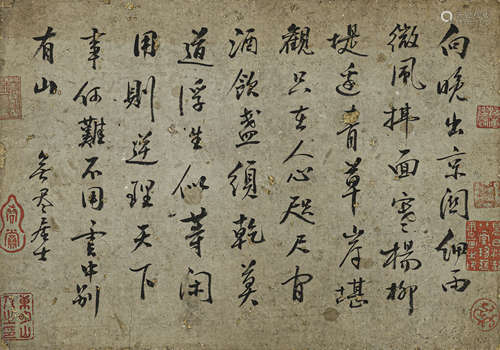 向晚出京關細雨
微風拂面寒楊柳
堤邊青草岸堪
觀只在人心咫尺間
酒飲盞須乾莫
道浮生似等閑
用則逆理天下
事何難不用雲中別
有山
無盡居士